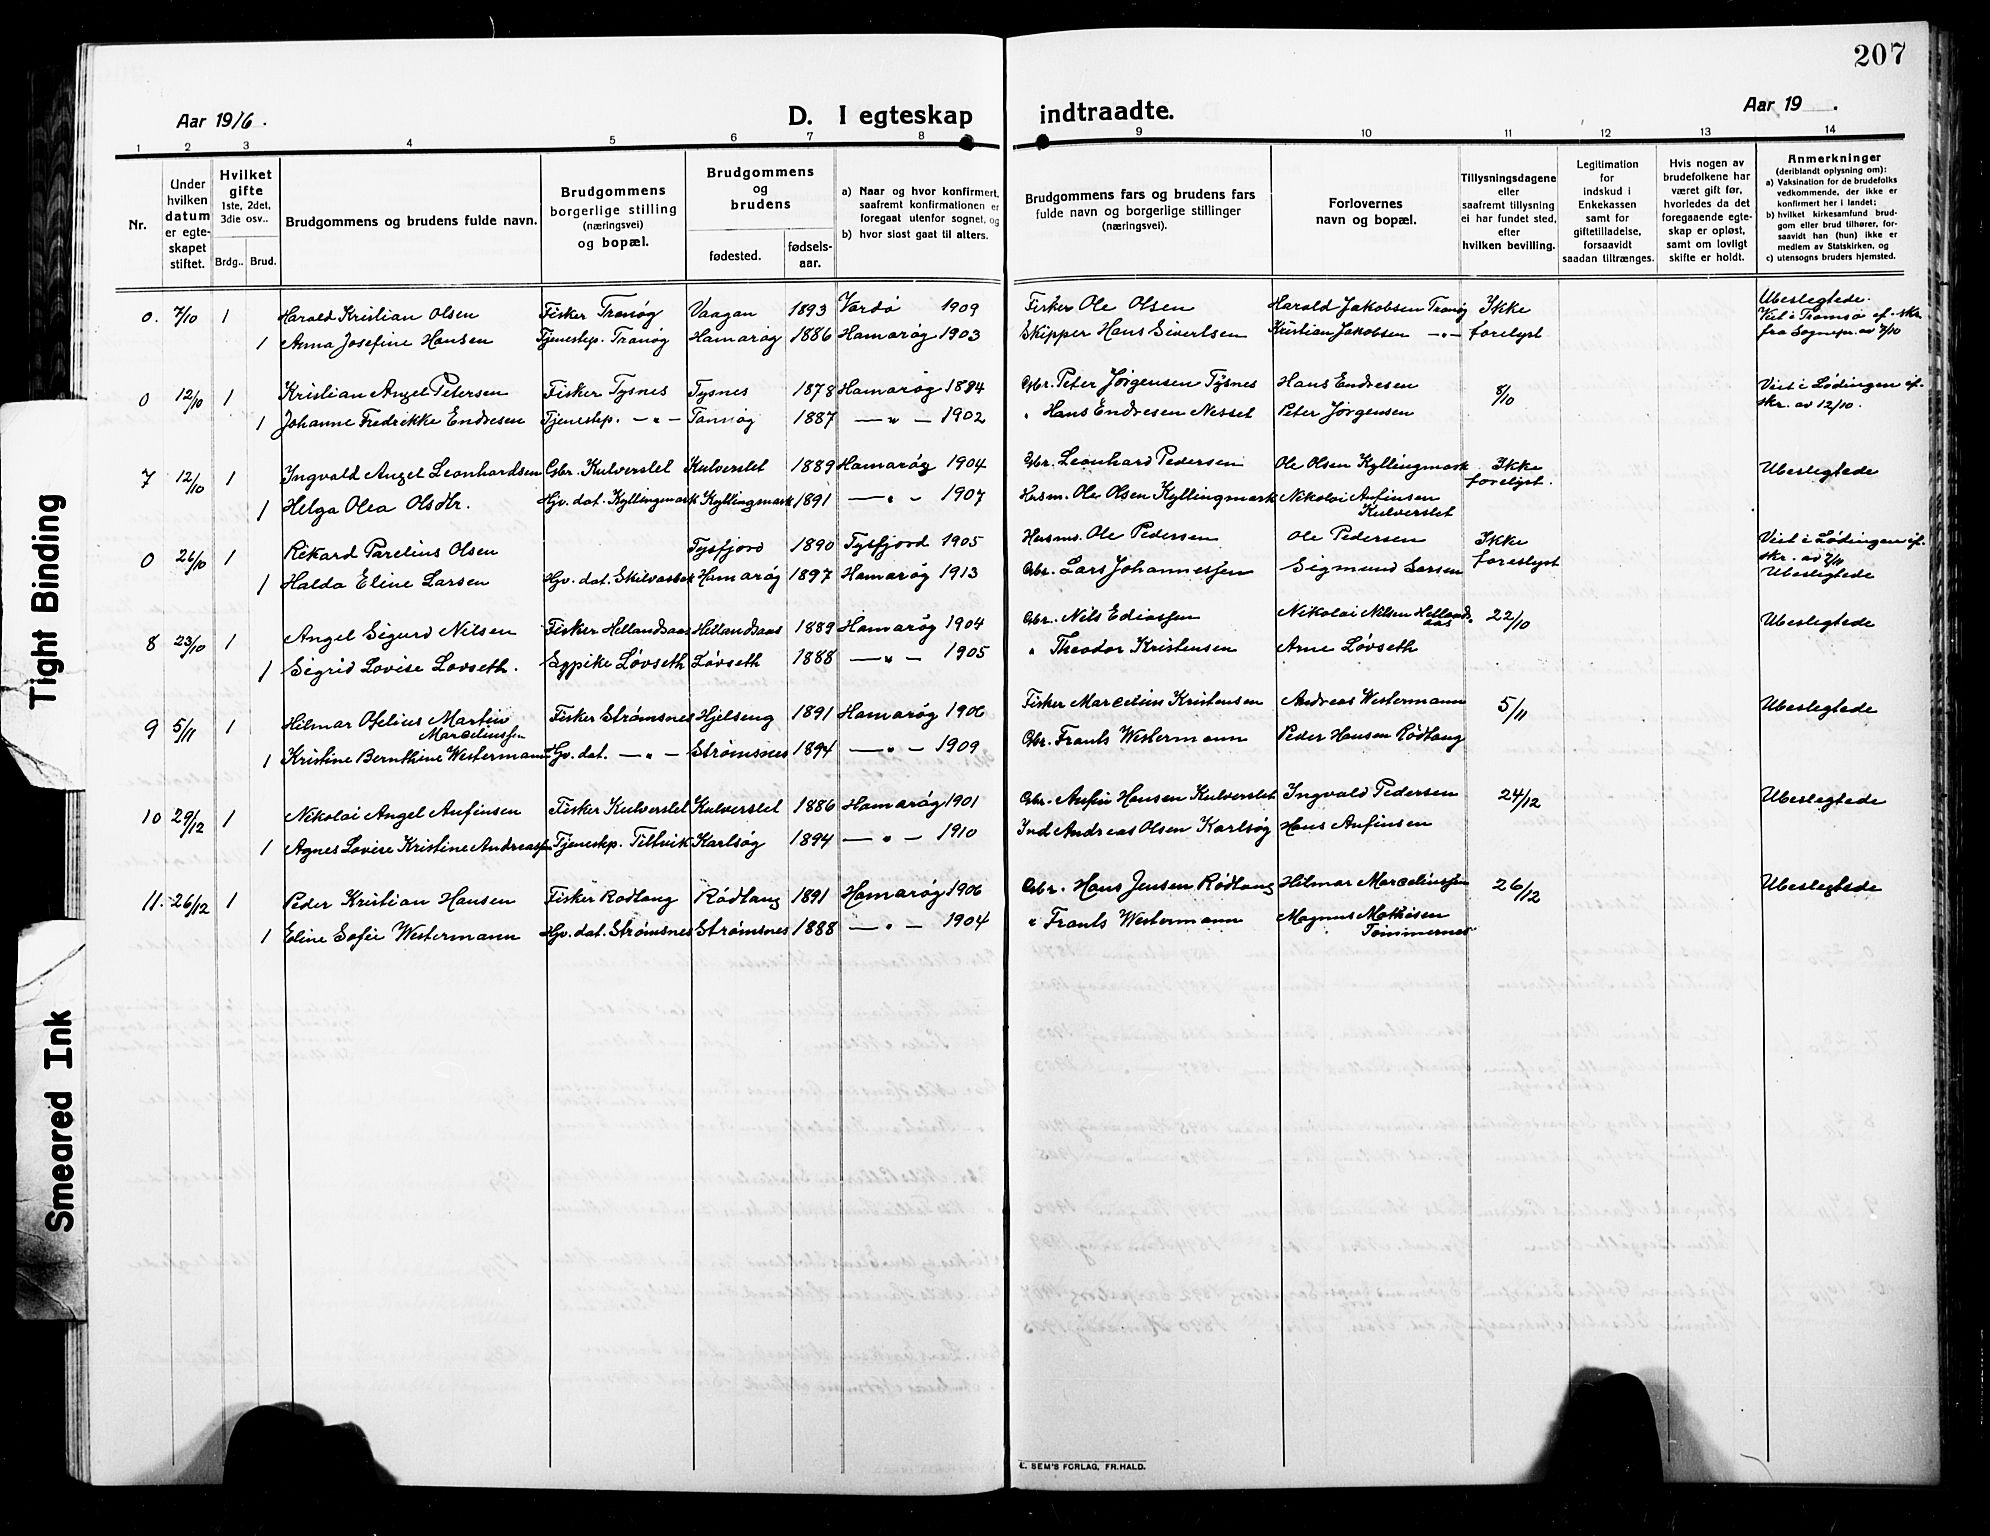 207
Aar 1916.
D. I egteskap
indtraadte.
Aar 19 .
1 2 3 4 5 6 7 8 9 10 11 12 13 14
Nr.
Under hvilken datum er egteskapet stiftet.
Hvilket gifte 1ste, 2det, 3die osv..
Brdg.. Brud.
Brudgommens og brudens fulde navn.
Brudgommens borgerlige stilling (næringsvei) og bopæl.
Brudgommens og brudens
fødested.
fødsels-aar.
a) Naar og hvor konfirmert, saafremt konfirmationen er foregaat utenfor sognet, og
b) hvor sidst gaat til alters.
Brudgommens fars og brudens fars fulde navn og borgerlige stillinger (næringsvei).
Forlovernes navn og bopæl.
Tillysningsdagene eller saafremt tillysning ei har fundet sted, efter hvilken bevilling.
Legitimation for indskud i Enkekassen samt for giftetilladelse, forsaavidt saadan tiltrænges.
Hvis nogen av brudefolkene har været gift før, hvorledes da det foregaaende egteskap er opløst, samt om lovligt skifte er holdt.
Anmerkninger (deriblandt oplysning om):
a) Vaksination for de brudefolks vedkommende, der ikke er konfirmert her i landet;
b) hvilket kirkesamfund brudgom eller brud tilhører, forsaavidt han (hun) ikke er medlem av Statskirken, og
c) utensogns bruders hjemsted.
0. 7/10 1 Harald Kristian Olsen Fisker Tranøy Vaagan 1893 Vardø 1909 Fisker Ole Olsen Harald Jakobsen Tranøy Ikke Ubeslegtede. Viet i Tromsø ef. skr.
1 Anna Josefine Hansen Tjenestep. Tranøy Hamarøy 1886 Hamarøy 1903 Skipper Hans Sivertsen Kristian Jakobsen -"- forelyst fra Sognepr. av 7/10
0 12/10 1 Kristian Angel Petersen Fisker Tysnes Tysnes 1878 Hamarøy 1894 Gbr. Peter Jørgensen Tysnes Hans Endresen 8/10 Viet i Lødingen ef.
1 Johanne Fredrikke Endresen Tjenestep. -"- Tannøy 1887 -"- 1902 " Hans Endresen Nesset Peter Jørgensen skr. av 12/10.
7 12/10 1 Ingvald Angel Leonhardsen Gbr. Kulverslet Kulverslet 1889 Hamarøy 1904 Gbr. Leonhard Pedersen Ole Olsen Kyllingmark Ikke forelyst. Ubeslegtede
1 Helga Olea Olsdtr. Gbr. dat. Kyllingmark Kyllingmark 1891 -"- 1907 Husm. Ole Olsen Kyllingmark Nikolai Anfinsen Kulverslet
0 26/10 1 Rikard Parelius Olsen Tysfjord 1890 Tysfjord 1905 Husms. Ole Pedersen Ole Pedersen Ikke Viet i Lødingen ef. skr. av 7/11
1 Halda Eline Larsen Gbr. dat. Skilvasbak Hamarøy 1897 Hamarøy 1913 Gbr. Lars Johannessen Sigmund Larsen foreslyst Ubeslegtede
8 23/10 1 Angel Sigurd Nilsen Fisker Hellandsaas Hellandsaas 1889 Hamarøy 1904 Gbr. Nils Ediassen Nikolai Nilsen Hellandsaas 22/10 Ubeslegtede
1 Sigrid Lovise Løvseth. Sypike Løvseth Løvseth 1888 -"- 1905 " Theodor Kristensen Arne Løvseth
9 5/11 1 Hilmar Ofelius Martin Marceliussen Fisker Strømsnes Hjelseng 1891 Hamarøy 1906 Fisker Marcelius Kristensen Andreas Westermann 5/11 Ubeslegtede
1 Kristine Bernthine Westermann Gbr. dat. -"- Strømsnes 1894 -"- 1909 Gbr. Frants Westermann Peder Hansen Rødtang
10 29/12 1 Nikolai Angel Anfinsen Fisker Kulverslet Kulverslet 1886 Hamarøy 1901 Gbr. Anfin Hansen Kulverslet Ingvald Pedersen 24/12 Ubeslegtede
1 Agnes Lovise Kristine Andreassen Tjenestep. Tiltvik Karlsøy 1894 -"- 1910 Ind Andreas Olsen Karlsøy Hans Anfinsen
11. 26/12 1 Peder Kristian Hansen Fisker Rødtang Rødtang 1891 Hamarøy 1906 Gbr. Hans Jensen Rødtang Hilmar Marceliussen 26/12 Ubeslegtede
1 Eline Sofie Westermann Gbr. dat. Strømsnes Strømsnes 1888 -"- 1904 " Frants Westermann Magnus Mathisen Tømmernes
Tight Binding
Smeared Ink
E. SEM'S FORLAG, FR.HALD.